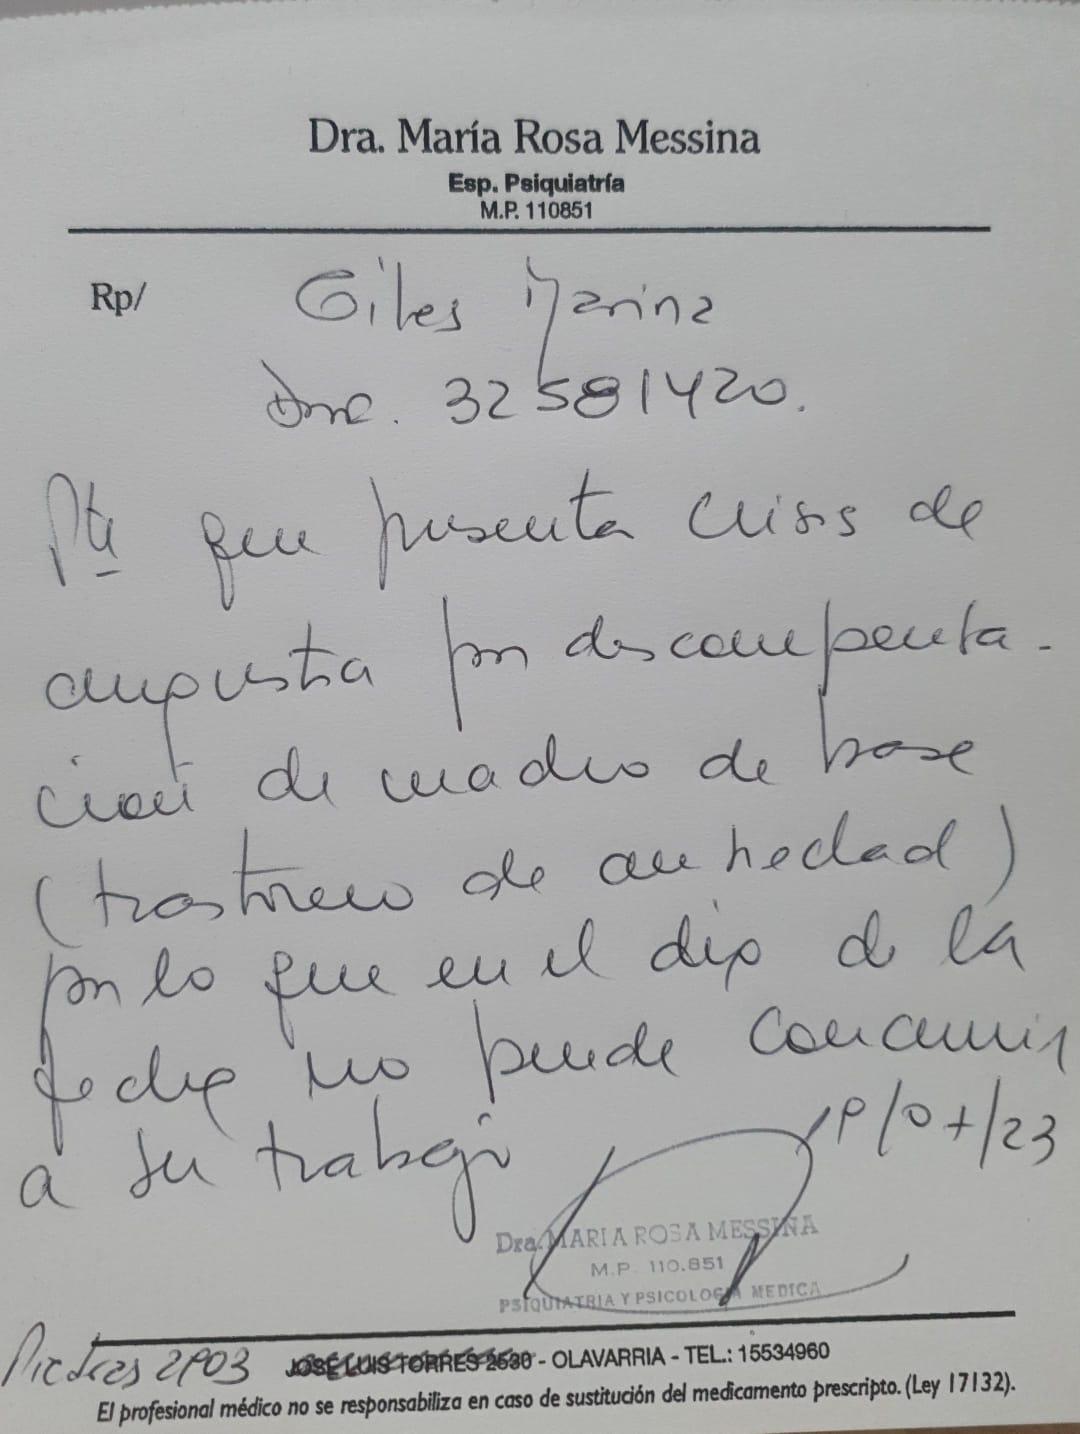 Dra. María Rosa Messina
Esp. Psiquiatría
M.P. 110851
Rp/
Giles Marina
DNI. 32581420.
Pte que presenta crisis de
angustia por descompensa-
ción de cuadro de base
(trastorno de ansiedad)
por lo que en el día de la
fecha no puede concurrir
a su trabajo
/07/23
Dra. MARIA ROSA MESSINA
M.P. 110.851
PSIQUIATRIA Y PSICOLOGIA MEDICA
Piedras 2903 JOSÉ LUIS TORRES 2530 - OLAVARRIA - TEL.: 15534960
El profesional médico no se responsabiliza en caso de sustitución del medicamento prescripto. (Ley 17132).